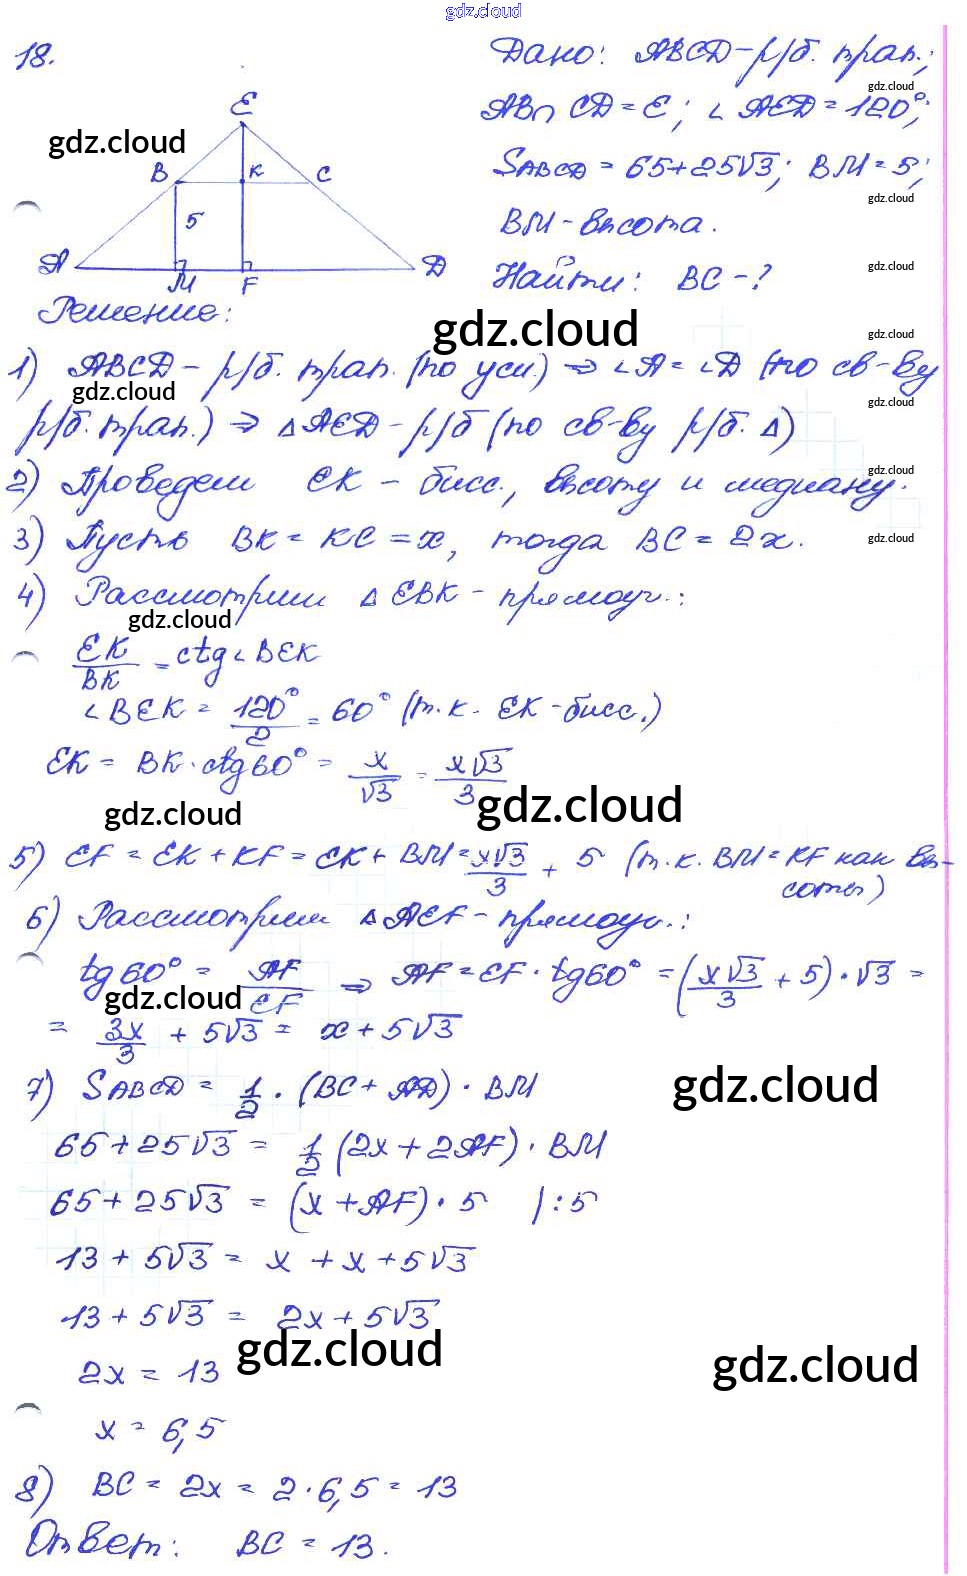 gdz.cloud
18.
Дано: ABCD – р/б. трап.;
gdz.cloud
AB ∩ CD = E; ∠AED = 120°;
E
gdz.cloud
gdz.cloud
B K C
S_ABCD = 65+25√3; BM = 5;
gdz.cloud
5
BM – высота.
A M F D
gdz.cloud
Найти: BC – ?
Решение:
gdz.cloud
gdz.cloud
1) ABCD – р/б. трап. (по усл.) ⇒ ∠A = ∠D (по св-ву
gdz.cloud
gdz.cloud
р/б. трап.) ⇒ △AED – р/б (по св-ву р/б. △)
2) Проведем EK – бисс., высоту и медиану.
gdz.cloud
3) Пусть BK = KC = x, тогда BC = 2x.
gdz.cloud
4) Рассмотрим △EBK – прямоуг.:
gdz.cloud
EK/BK = ctg∠BEK
∠BEK = 120°/2 = 60° (т.к. EK – бисс.)
EK = BK · ctg60° = x/√3 = x√3/3
gdz.cloud
gdz.cloud
5) EF = EK + KF = EK + BM = x√3/3 + 5 (т.к. BM = KF как вы-
соты)
6) Рассмотрим △AEF – прямоуг.:
tg60° = AF/EF ⇒ AF = EF · tg60° = (x√3/3 + 5) · √3 =
gdz.cloud
= 3x/3 + 5√3 = x + 5√3
7) S_ABCD = 1/2 · (BC + AD) · BM
gdz.cloud
65+25√3 = 1/2 (2x + 2AF) · BM
65+25√3 = (x + AF) · 5 |:5
13 + 5√3 = x + x + 5√3
13 + 5√3 = 2x + 5√3
gdz.cloud
gdz.cloud
2x = 13
x = 6,5
8) BC = 2x = 2 · 6,5 = 13
Ответ: BC = 13.